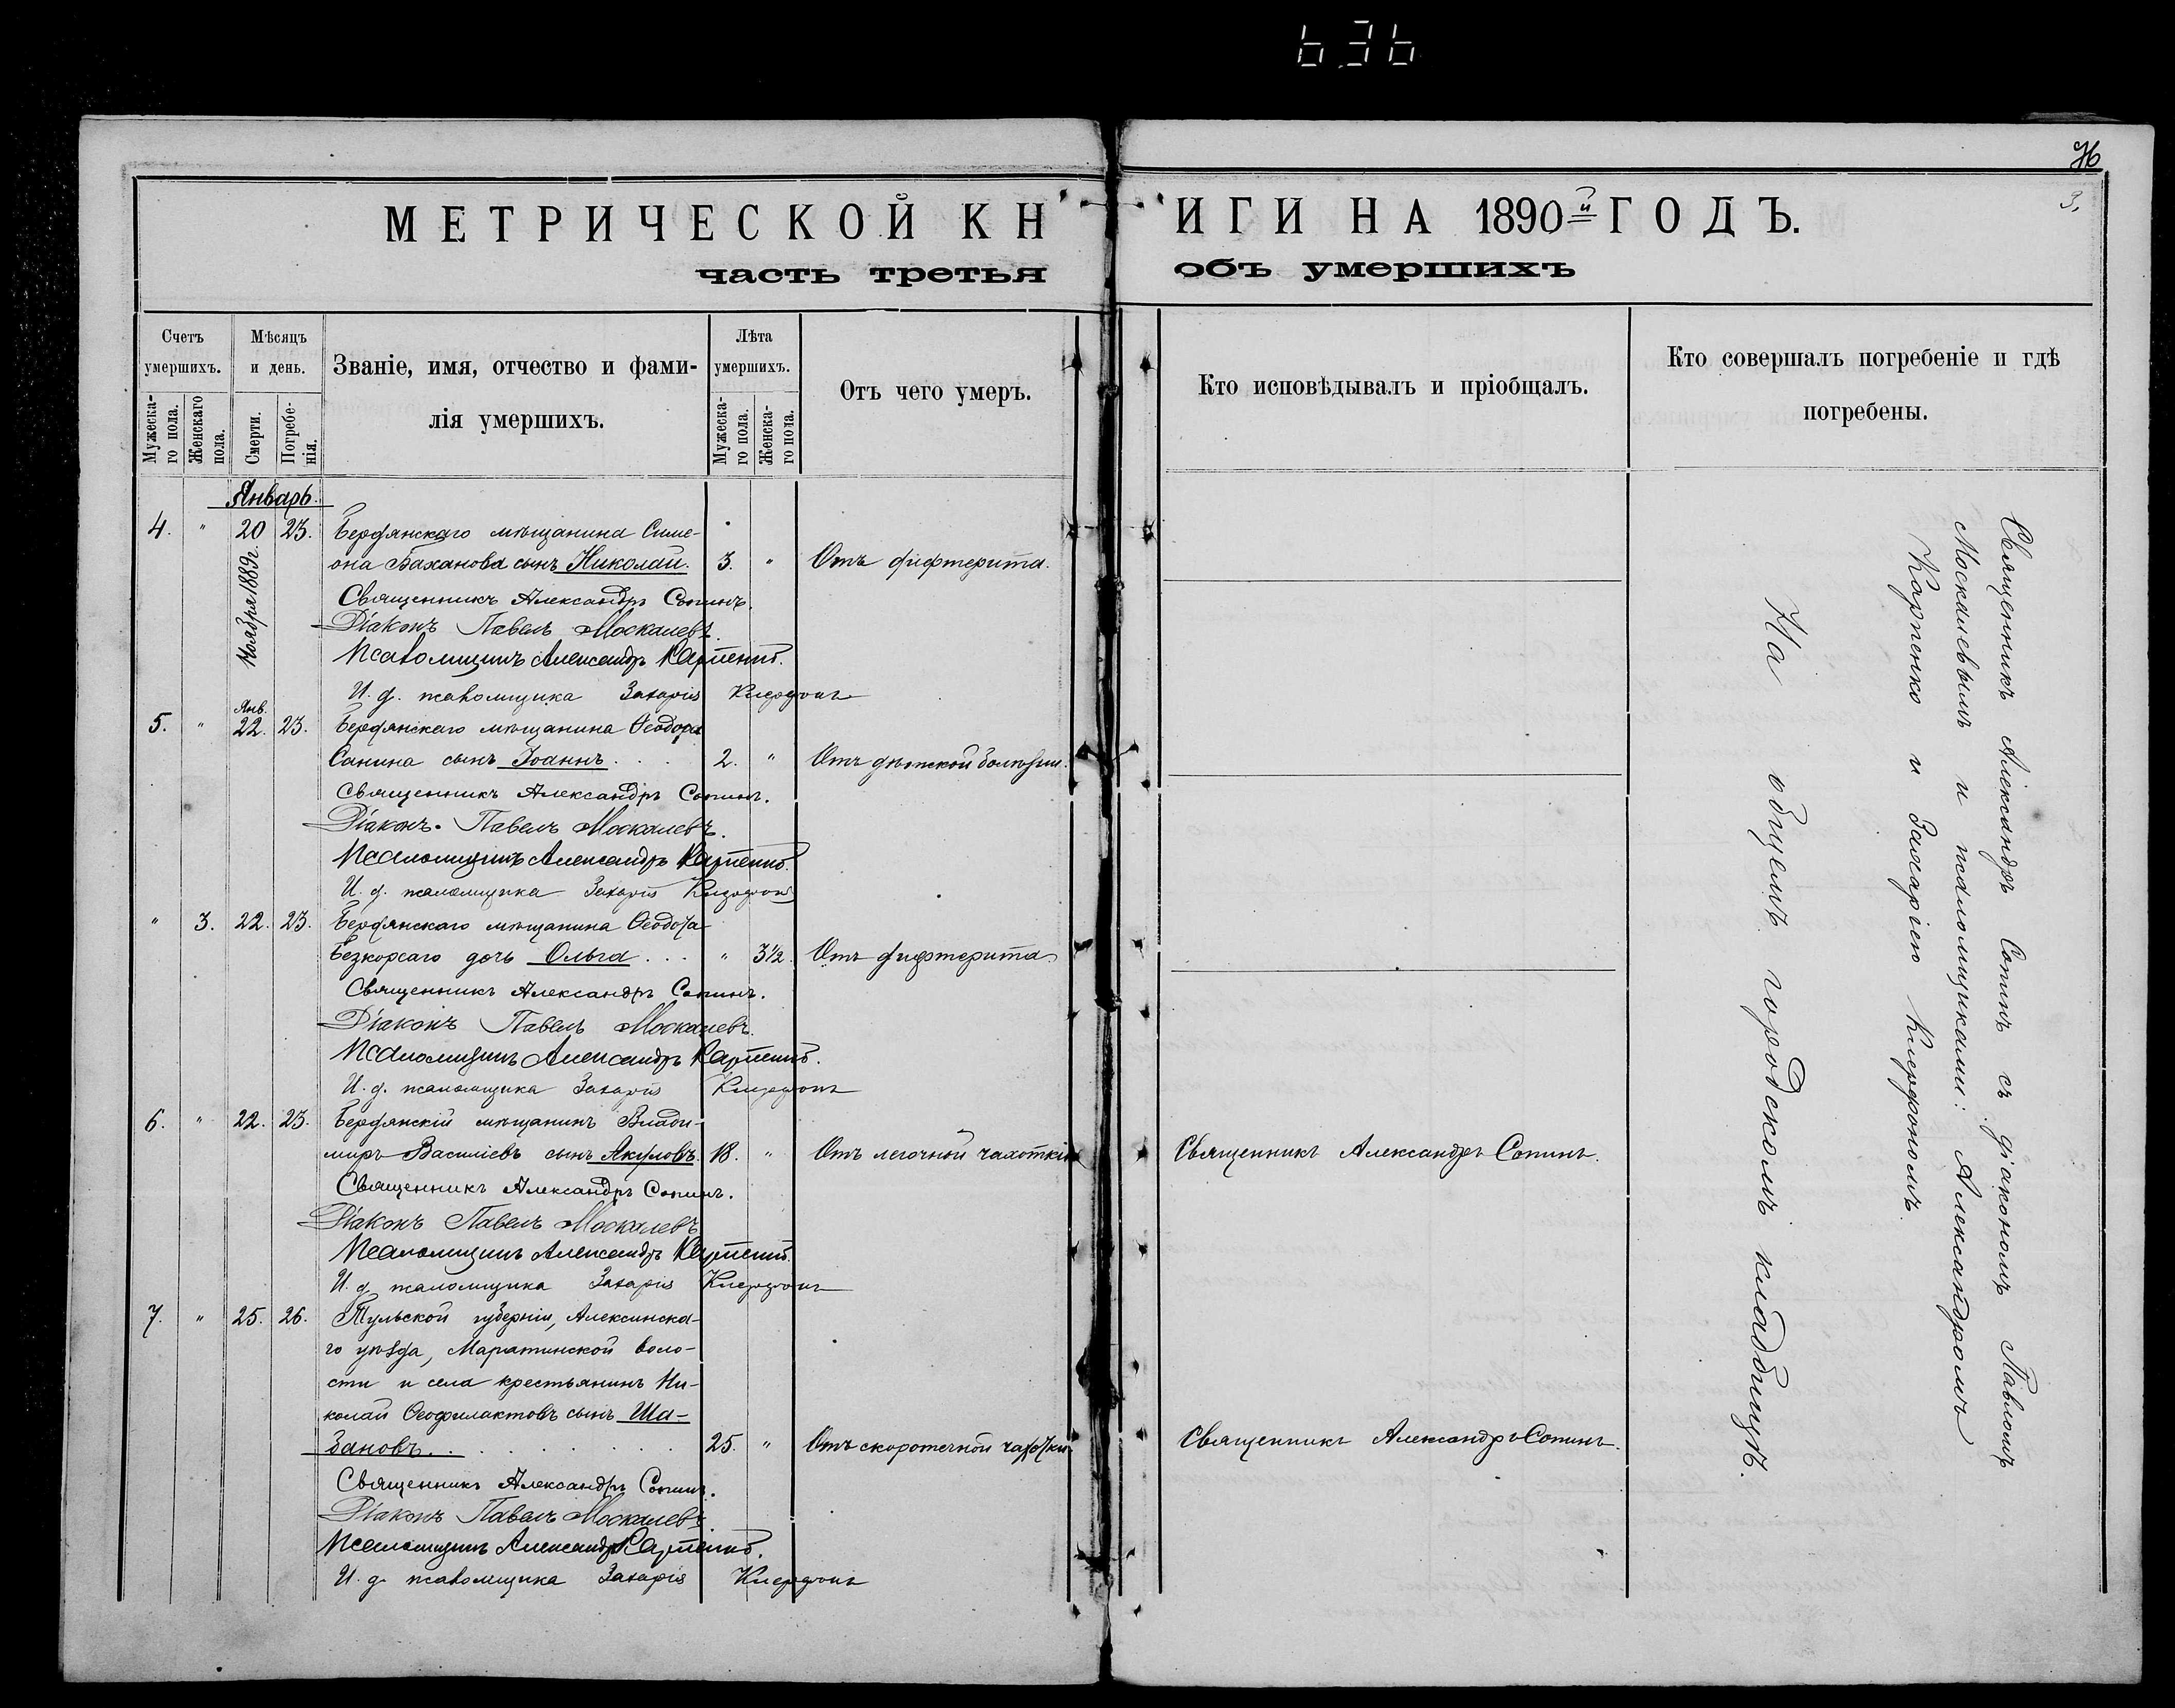 636
76
3.
МЕТРИЧЕСКОЙ КНИГИ НА 1890й ГОДЪ.
часть третья объ умершихъ
Счетъ умершихъ.
Мужеска-го пола.
Женскаго пола.
Мѣсяцъ и день.
Смерти.
Погребе-нія.
Званіе, имя, отчество и фами-
лія умершихъ.
Лѣта умершихъ.
Мужеска-го пола.
Женска-го пола.
Отъ чего умеръ.
Кто исповѣдывалъ и пріобщалъ.
Кто совершалъ погребеніе и гдѣ
погребены.
Январь.
4. " 20 23. Бердянскаго мѣщанина Симе-
Ноября 1889 г.
она Баханова сынъ Николай. 3. " Отъ дифтерита.
Священникъ Александръ Сопинъ.
Діаконъ Павелъ Москалевъ.
Псаломщикъ Александръ Карпенко.
И. д. псаломщика Захарія Ксерофонъ
Янв.
5. " 22. 23. Бердянскаго мѣщанина Ѳеодора
Санина сынъ Іоаннъ . . . 2. " Отъ дѣтской болѣзни.
Священникъ Александръ Сопинъ.
Діаконъ Павелъ Москалевъ.
Псаломщикъ Александръ Карпенко.
И. д. псаломщика Захарія
" 3. 22. 23. Бердянскаго мѣщанина Ѳеодота
Безкорсаго дочь Ольга . . . " 3½. Отъ дифтерита.
Священникъ Александръ Сопинъ.
Діаконъ Павелъ Москалевъ.
Псаломщикъ Александръ Карпенко.
И. д. псаломщика Захарія
6. " 22. 23. Бердянскій мѣщанинъ Влади-
миръ Василіевъ сынъ Акуловъ. 18. " Отъ легочной чахотки Священникъ Александръ Сопинъ.
Священникъ Александръ Сопинъ.
Діаконъ Павелъ Москалевъ
Псаломщикъ Александръ Карпенко.
И. д. псаломщика Захарія
7. " 25. 26. Тульской губерніи, Алексинска-
го уѣзда, Маратинской воло-
сти и села крестьянинъ Ни-
колай Ѳеофилактовъ сынъ Ша-
зановъ. . . . 25. " Отъ скоротечной чахотки Священникъ Александръ Сопинъ.
Священникъ Александръ Сопинъ.
Діаконъ Павелъ Москалевъ
Псаломщикъ Александръ Карпенко.
И. д. псаломщика Захарія
Священникъ Александръ Сопинъ съ діакономъ Павломъ
Москалевымъ и псаломщиками: Александромъ
Карпенко и Захаріею
На общемъ городскомъ кладбищѣ.